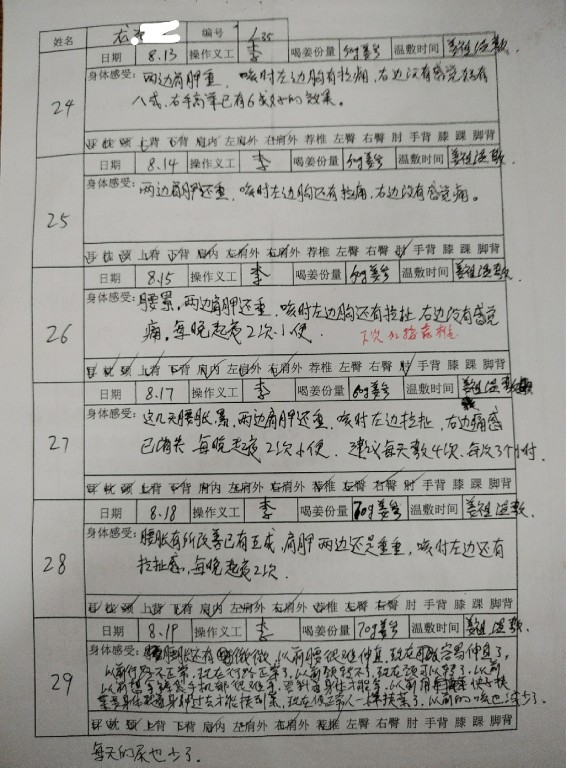 姓名 龙 编号 L35
24
日期 8.13 操作义工 李 喝姜份量 60g姜号 温敷时间
身体感受: 两边肩胛重，咳时左边胸有拉痛，右边没有感觉
八成，右手 已有6成好的效果。
耳 枕 颈 上背 下背 肩内 左肩外 右肩外 荐椎 左臀 右臀 肘 手背 膝 踝 脚背
25
日期 8.14 操作义工 李 喝姜份量 60g姜号 温敷时间
身体感受: 两边肩胛还重，咳时左边胸还有拉痛，右边没有感觉痛。
耳 枕 颈 上背 下背 肩内 左肩外 右肩外 荐椎 左臀 右臀 肘 手背 膝 踝 脚背
26
日期 8.15 操作义工 李 喝姜份量 60g姜号 温敷时间
身体感受: 腰累，两边肩胛还重，咳时左边胸还有拉扯，右边没有感觉
痛，每晚起夜2次小便． 下次加按荐椎
耳 枕 颈 上背 下背 肩内 左肩外 右肩外 荐椎 左臀 右臀 肘 手背 膝 踝 脚背
27
日期 8.17 操作义工 李 喝姜份量 60g姜号 温敷时间
身体感受: 这几天腰胀累，两边肩胛还重，咳时左边拉扯，右边痛感
已消失 每晚起夜2次小便． 建议每天敷4次，每次3个小时．
耳 枕 颈 上背 下背 肩内 左肩外 右肩外 荐椎 左臀 右臀 肘 手背 膝 踝 脚背
28
日期 8.18 操作义工 李 喝姜份量 70g姜号 温敷时间
身体感受: 腰胀有所改善已有五成，肩胛两边还是重重，咳时左边还有
拉扯感，每晚起夜2次．
耳 枕 颈 上背 下背 肩内 左肩外 右肩外 荐椎 左臀 右臀 肘 手背 膝 踝 脚背
29
日期 8.19 操作义工 李 喝姜份量 70g姜号 温敷时间
身体感受: 腰胀还有微微，以前腰很难伸直，现在 容易伸直了，
以前行路不正常，现在行路正常了，以前 现在 可以转了，以前
以前 手机都很难
现在 正常人一样 了，以前的咳也减少了．
耳 枕 颈 上背 下背 肩内 左肩外 右肩外 荐椎 左臀 右臀 肘 手背 膝 踝 脚背
每天的尿也少了．